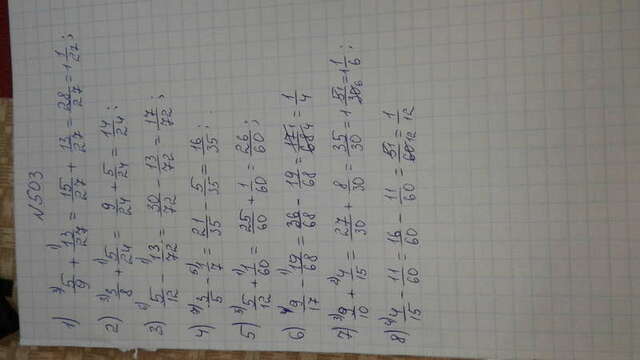 №503
1) ³⁾5/9 + ¹⁾13/27 = 15/27 + 13/27 = 28/27 = 1 1/27;
2) ³⁾3/8 + ¹⁾5/24 = 9/24 + 5/24 = 14/24;
3) ⁶⁾5/12 - ¹⁾13/72 = 30/72 - 13/72 = 17/72;
4) ⁷⁾3/5 - ⁵⁾1/7 = 21/35 - 5/35 = 16/35;
5) ⁵⁾5/12 + ¹⁾1/60 = 25/60 + 1/60 = 26/60;
6) ⁴⁾9/17 - ¹⁾19/68 = 36/68 - 19/68 = 17 1/68 4 = 1/4
7) ³⁾9/10 + ²⁾4/15 = 27/30 + 8/30 = 35/30 = 1 5 1/30 6 = 1 1/6;
8) ⁴⁾4/15 - 11/60 = 16/60 - 11/60 = 5 1/60 12 = 1/12